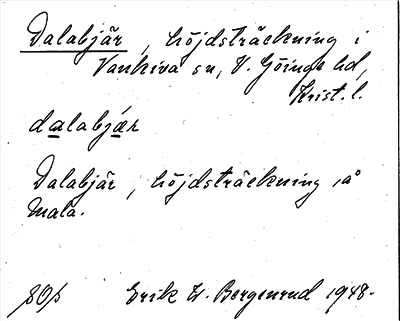 Dalabjär, höjdsträckning i
Vankiva sn, V. Göinge hd,
Krist. l.
dalabjǽr
Dalabjär, höjdsträckning på
Mala.
Erik W. Bergenrud 1948.